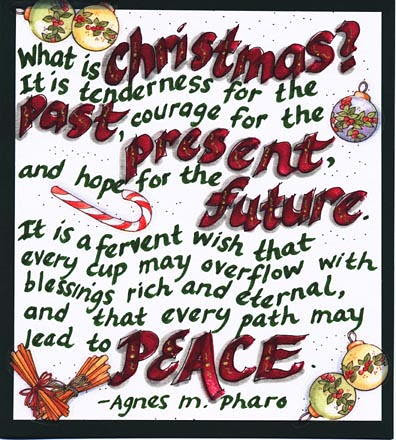 What is christmas?
It is tenderness for the
past, courage for the
present,
and hope for the
future.
It is a fervent wish that
every cup may overflow with
blessings rich and eternal,
and that every path may
lead to PEACE.
-Agnes m. Pharo